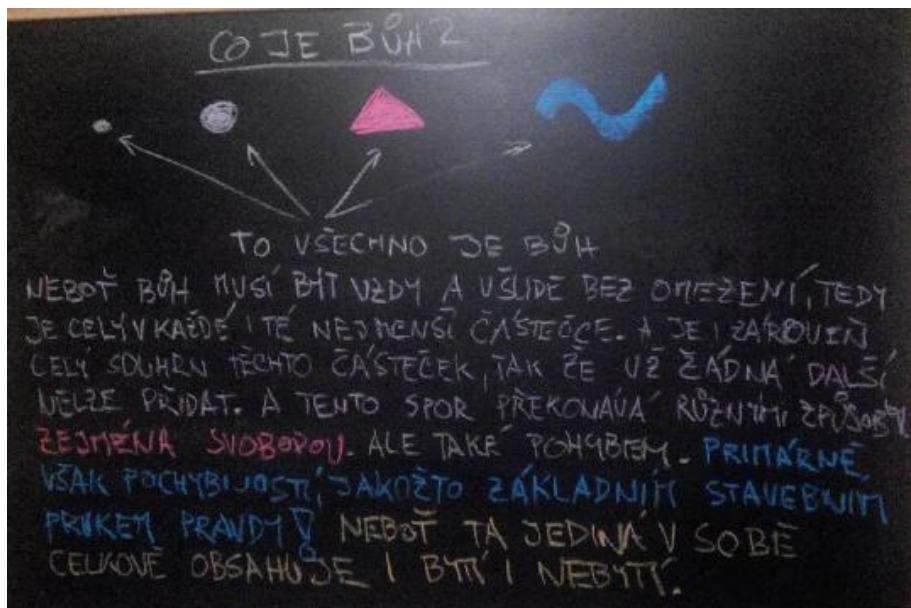 CO JE BŮH?
TO VŠECHNO JE BŮH
NEBOŤ BŮH MUSÍ BÝT VŽDY A VŠUDE BEZ OMEZENÍ, TEDY
JE CELÝ V KAŽDÉ I TÉ NEJMENŠÍ ČÁSTEČCE. A JE I ZÁROVEŇ
CELÝ SOUHRN TĚCHTO ČÁSTEČEK, TAK ŽE UŽ ŽÁDNÁ DALŠÍ
NELZE PŘIDAT. A TENTO SPOR PŘEKONÁVÁ RŮZNÝMI ZPŮSOBY,
ZEJMÉNA SVOBODOU. ALE TAKÉ POHYBEM. PRIMÁRNĚ
VŠAK POCHYBNOSTÍ, JAKOŽTO ZÁKLADNÍM STAVEBNÍM
PRVKEM PRAVDY! NEBOŤ TA JEDINÁ V SOBĚ
CELKOVĚ OBSAHUJE I BYTÍ I NEBYTÍ.